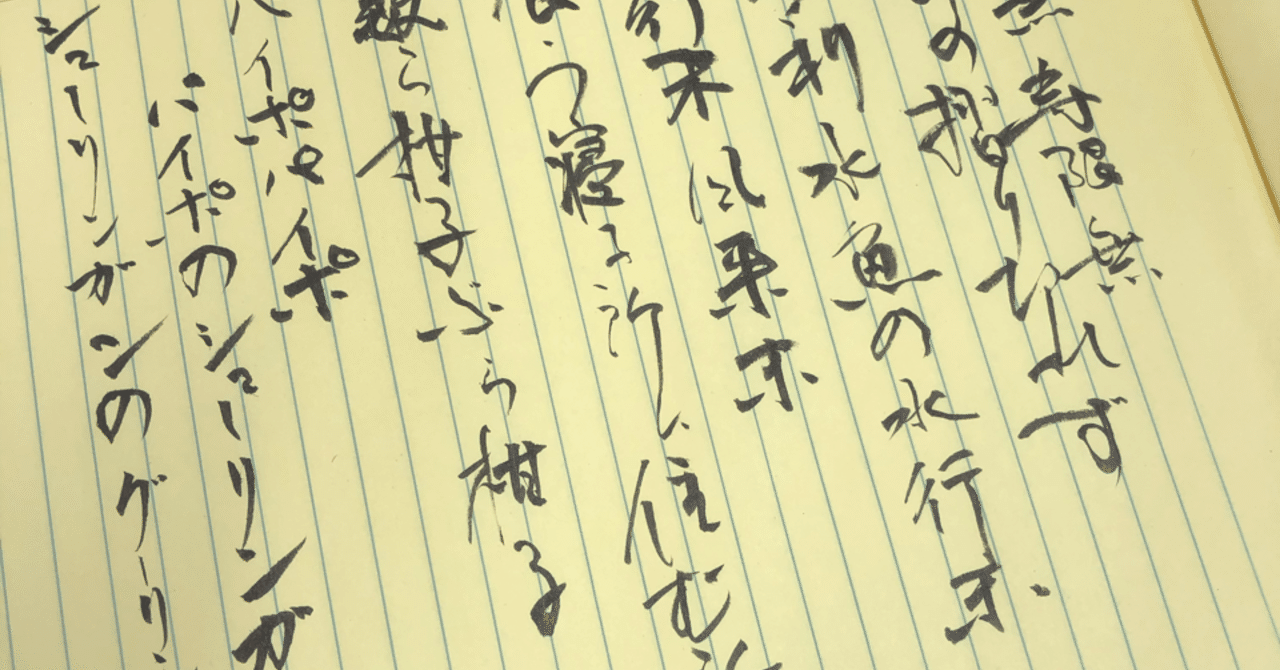 寿限無、
の摺り切れず
利水魚の水行末、
行末風来末、
う寝る所に住む所
藪ら柑子ぶら柑子
パイポパイポ
パイポのシューリンガ
シューリンガンのグーリン